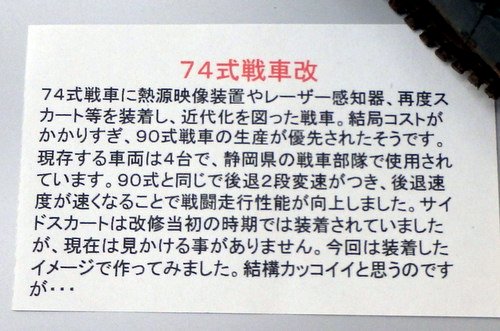 74式戦車改
74式戦車に熱源映像装置やレーザー感知器、再度ス
カート等を装着し、近代化を図った戦車。結局コストが
かかりすぎ、90式戦車の生産が優先されたそうです。
現存する車両は4台で、静岡県の戦車部隊で使用され
ています。90式と同じで後退2段変速がつき、後退速
度が速くなることで戦闘走行性能が向上しました。サイ
ドスカートは改修当初の時期では装着されていました
が、現在は見かける事がありません。今回は装着した
イメージで作ってみました。結構カッコイイと思うのです
が・・・